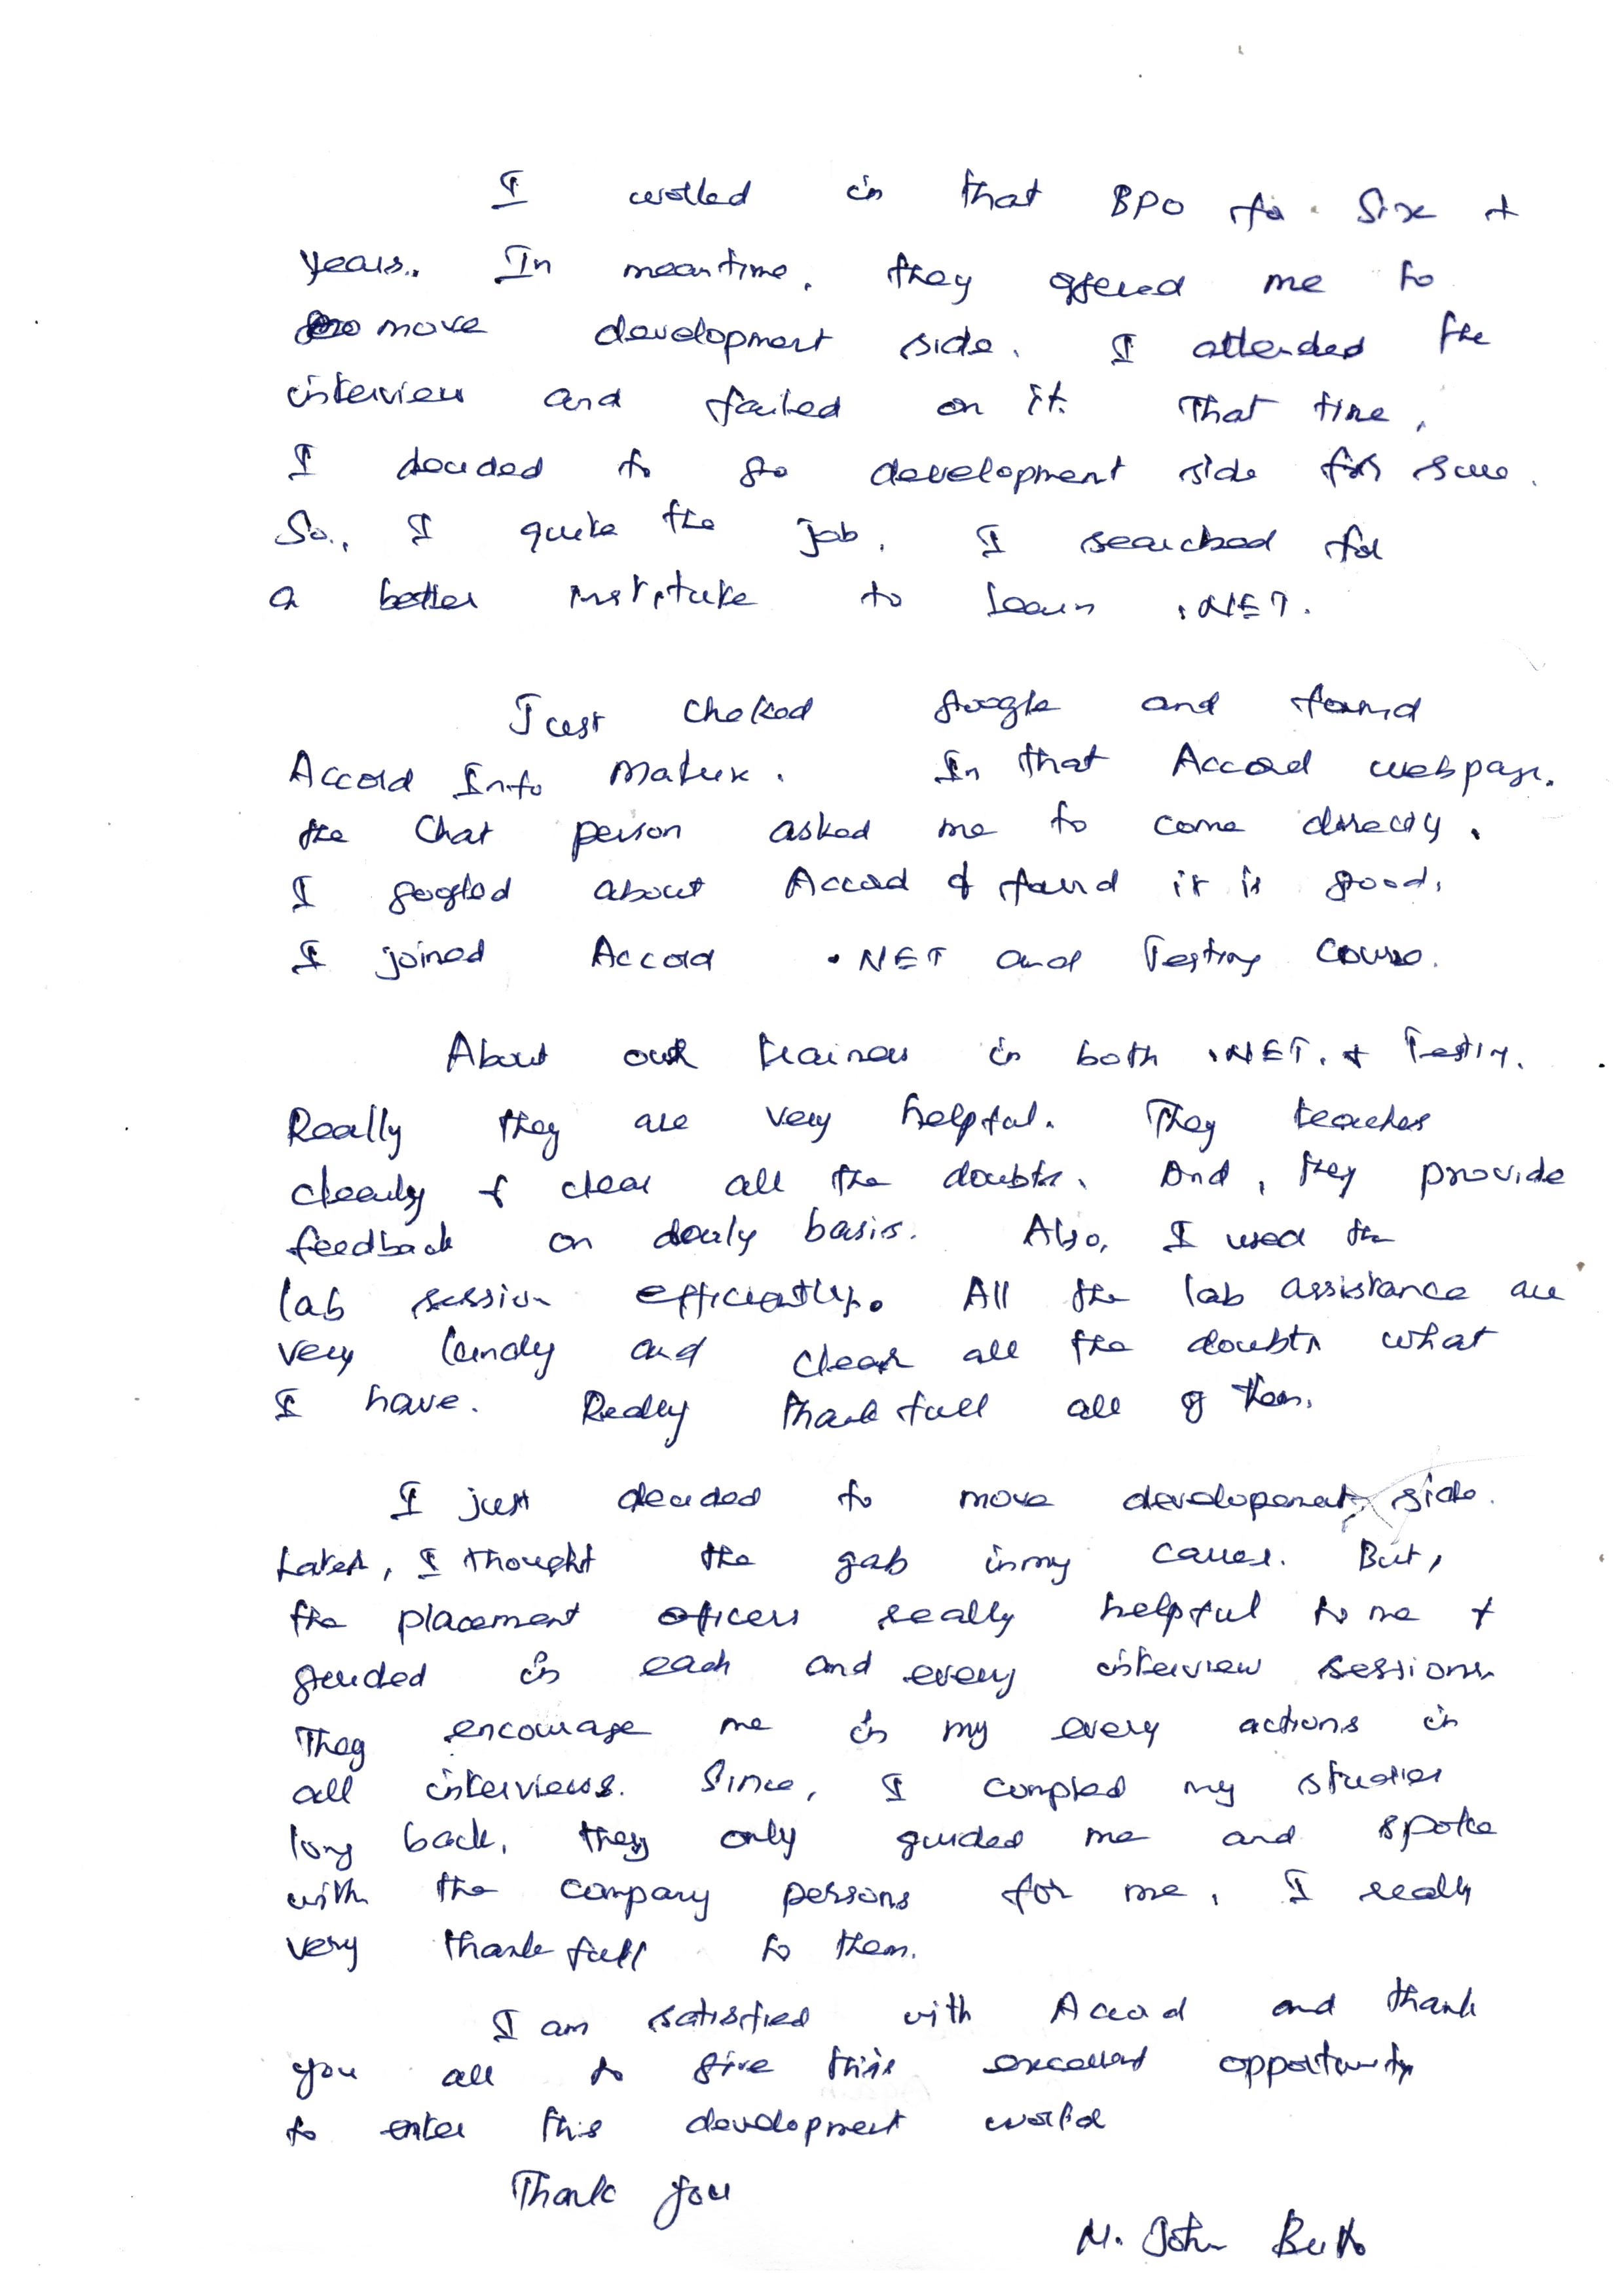 I worked in that BPO for Six +
years. In meantime, they offered me to
move development side. I attended the
interview and failed on it. That time,
I decided to go development side for sure.
So, I quite the job. I searched for
a better institute to learn .NET.
Just cheked google and found
Accord Info Matrix. In that Accord webpage.
the Chat person asked me to come directly.
I googled about Accord & found it is good.
I joined Accord .NET and Testing Course.
About our trainers in both .NET. & Testing.
Really they are very helpful. They teaches
clearly & clear all the doubts. And, they provide
feedback on daily basis. Also, I used the
lab session efficiently. All the lab assistance are
very and clear all the doubts what
I have. Really thankfull all of them.
I just decided to move side.
Later, I thought the gab in my career. But,
the placement officers really helpful to me &
guided in each and every interview sessions
They encourage me in my every actions in
all interviews. Since, I compled my studies
long back, they only guided me and spoke
with the company persons for me. I really
very thankfull to them.
I am satisfied with Accord and thank
you all to give this excellent opportunity
to enter this development world
Thank you
M. John